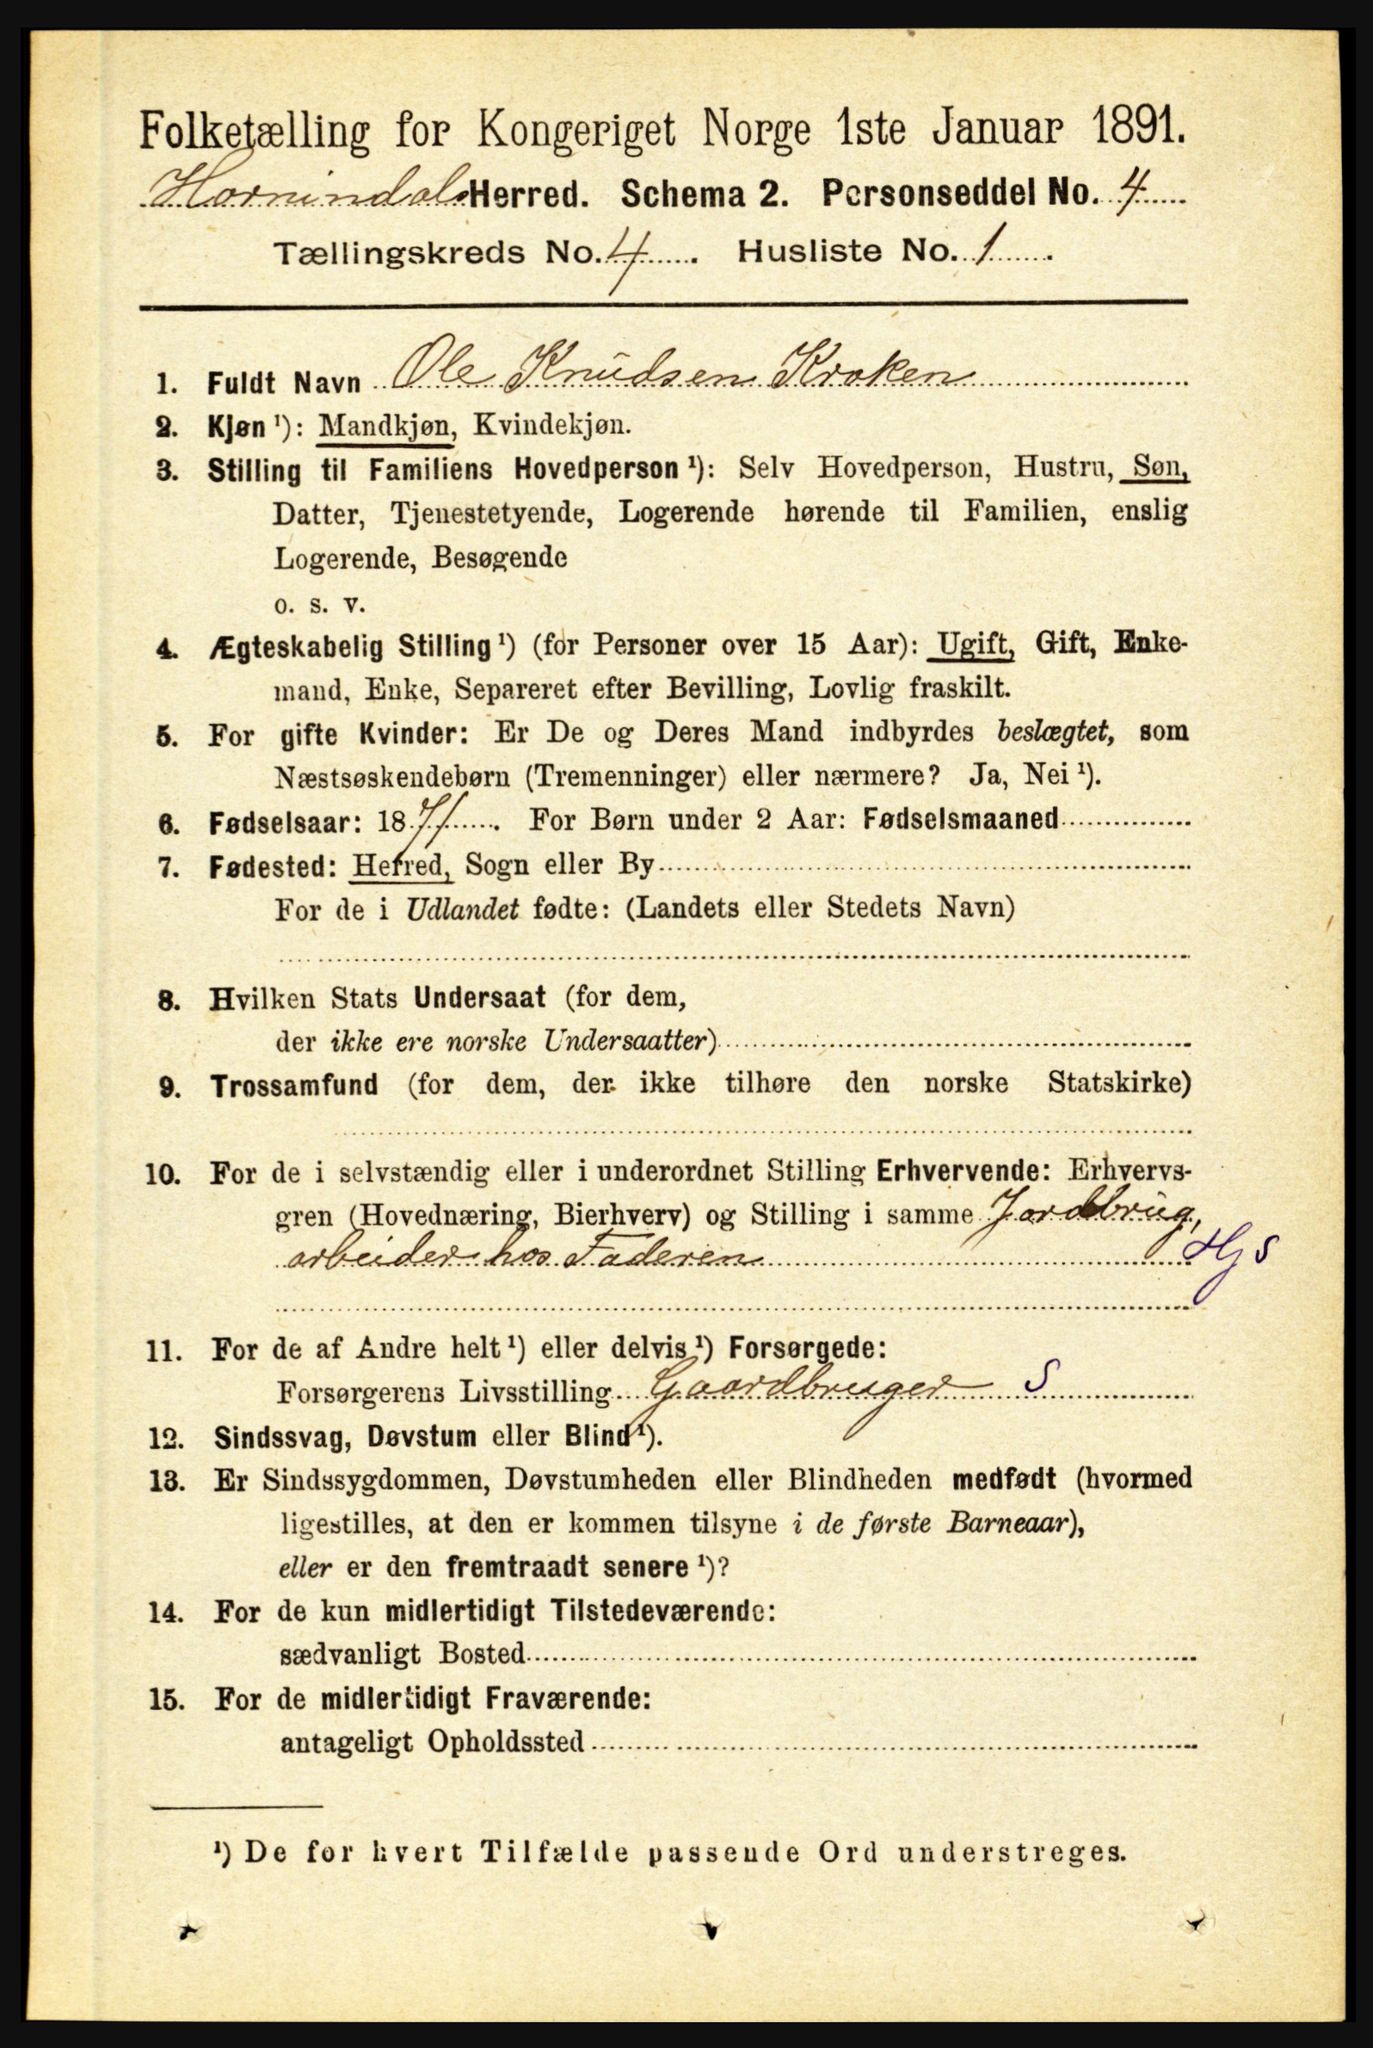 Folketælling for Kongeriget Norge 1ste Januar 1891.
Hornindals Herred. Schema 2. Personseddel No. 4
Tællingskreds No. 4. Husliste No. 1
1. Fuldt Navn Ole Knudsen Kroken
2. Kjøn ¹): Mandkjøn, Kvindekjøn.
3. Stilling til Familiens Hovedperson ¹): Selv Hovedperson, Hustru, Søn,
Datter, Tjenestetyende, Logerende hørende til Familien, enslig
Logerende, Besøgende
o. s. v.
4. Ægteskabelig Stilling ¹) (for Personer over 15 Aar): Ugift, Gift, Enke-
mand, Enke, Separeret efter Bevilling, Lovlig fraskilt.
5. For gifte Kvinder: Er De og Deres Mand indbyrdes beslægtet, som
Næstsøskendebørn (Tremenninger) eller nærmere? Ja, Nei ¹).
6. Fødselsaar: 1871. For Børn under 2 Aar: Fødselsmaaned
7. Fødested: Herred, Sogn eller By
For de i Udlandet fødte: (Landets eller Stedets Navn)
8. Hvilken Stats Undersaat (for dem,
der ikke ere norske Undersaatter)
9. Trossamfund (for dem, der ikke tilhøre den norske Statskirke)
10. For de i selvstændig eller i underordnet Stilling Erhvervende: Erhvervs-
gren (Hovednæring, Bierhverv) og Stilling i samme Jordbrug,
arbeider hos Faderen Hj S
11. For de af Andre helt ¹) eller delvis ¹) Forsørgede:
Forsørgerens Livsstilling Gaardbruger S
12. Sindssvag, Døvstum eller Blind ¹).
13. Er Sindssygdommen, Døvstumheden eller Blindheden medfødt (hvormed
ligestilles, at den er kommen tilsyne i de første Barneaar),
eller er den fremtraadt senere ¹)?
14. For de kun midlertidigt Tilstedeværende:
sædvanligt Bosted
15. For de midlertidigt Fraværende:
antageligt Opholdssted
¹) De for hvert Tilfælde passende Ord understreges.